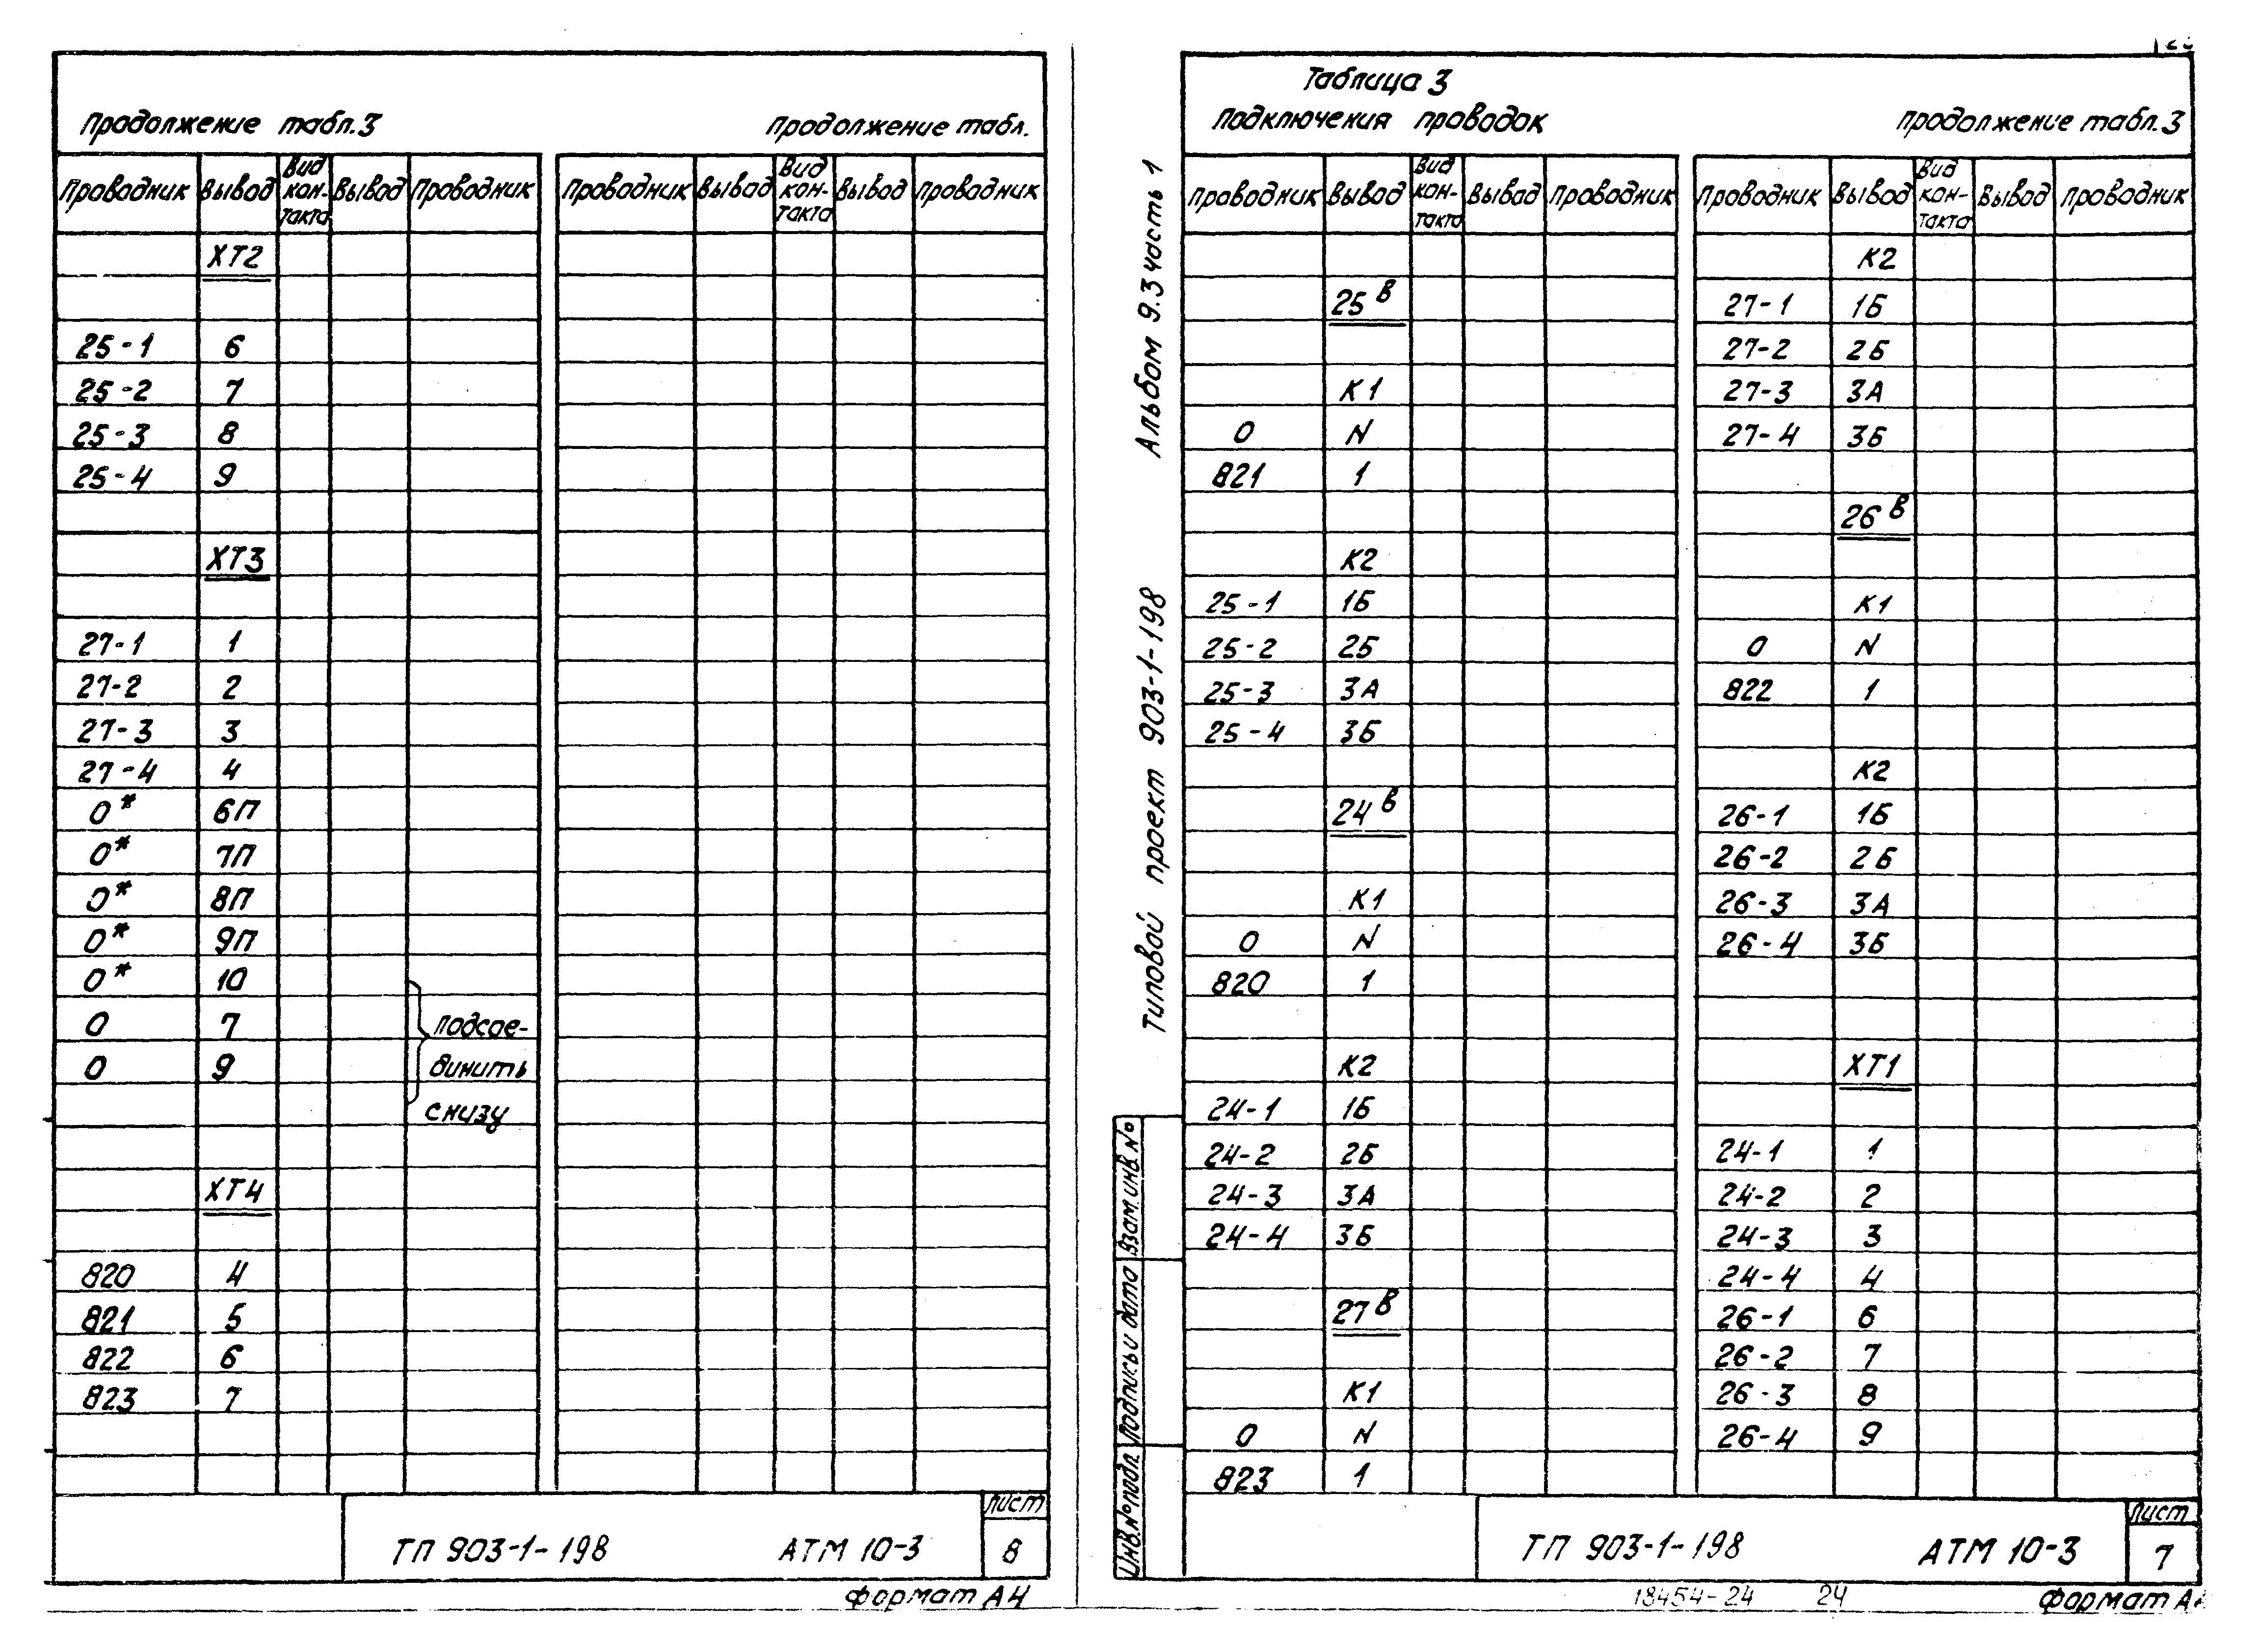 Продолжение табл.3
Продолжение табл.
Проводник Вывод Вид контакта Вывод Проводник
Проводник Вывод Вид контакта Вывод Проводник
ХТ2
25-1 6
25-2 7
25-3 8
25-4 9
ХТ3
27-1 1
27-2 2
27-3 3
27-4 4
0* 6П
0* 7П
0* 8П
0* 9П
0* 10
0 7 подсое-
0 9 динить
снизу
ХТ4
820 4
821 5
822 6
823 7
ТП 903-1-198 АТМ 10-3
Лист
8
Формат А4
Альбом 9.3 часть 1
Типовой проект 903-1-198
Взам.инв.№
Подпись и дата
Инв.№ подл.
Таблица 3
Подключения проводок
Продолжение табл.3
Проводник Вывод Вид кон-такта Вывод Проводник
Проводник Вывод Вид кон-такта Вывод Проводник
25в
К1
0 N
821 1
К2
25-1 1Б
25-2 2Б
25-3 3А
25-4 3Б
24в
К1
0 N
820 1
К2
24-1 1Б
24-2 2Б
24-3 3А
24-4 3Б
27в
К1
0 N
823 1
К2
27-1 1Б
27-2 2Б
27-3 3А
27-4 3Б
26в
К1
0 N
822 1
К2
26-1 1Б
26-2 2Б
26-3 3А
26-4 3Б
ХТ1
24-1 1
24-2 2
24-3 3
24-4 4
26-1 6
26-2 7
26-3 8
26-4 9
ТП 903-1-198 АТМ 10-3
Лист
7
18454-24 24
Формат